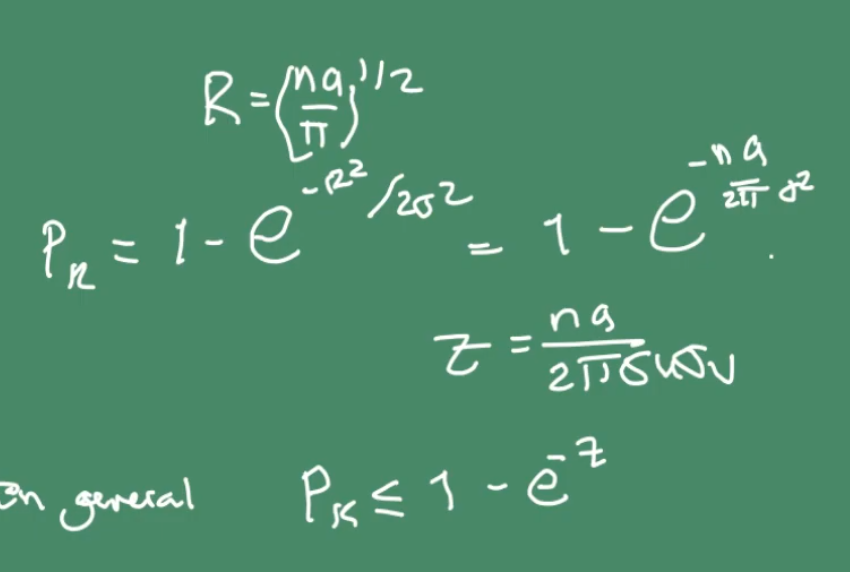 R = (na/π)^1/2
P_K = 1 - e^-R²/2σ² = 1 - e^-na/2πσ²
z = na/2πσuσv
In general P_K ≤ 1 - e^-z